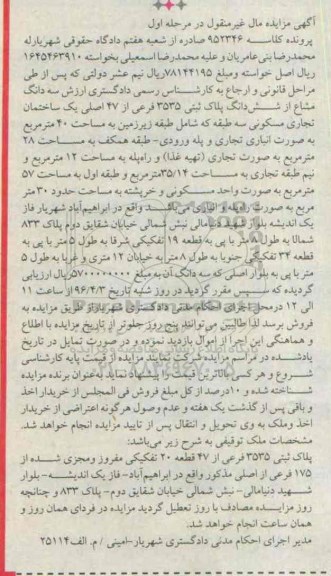 آگهی مزایده مال غیرمنقول در مرحله اول
پرونده کلاسه ۹۵۲۳۴۶ صادره از شعبه هفتم دادگاه حقوقی شهریار له
محمدرضا بنی عامریان و علیه محمدرضا اسمعیلی بخواسته ۱۶۴۵۴۶۳۹۱۰
ریال اصل خواسته ومبلغ ۷۸۱۴۴۱۹۵ ریال نیم عشر دولتی که پس از طی
مراحل قانونی و ارجاع به کارشناس رسمی دادگستری ارزش سه دانگ
مشاع از ششدانگ پلاک ثبتی ۳۵۳۵ فرعی از ۴۷ اصلی یک ساختمان
تجاری مسکونی سه طبقه که شامل طبقه زیرزمین به مساحت ۴۰ مترمربع
به صورت انباری تجاری و پله ورودی- طبقه همکف به مساحت ۲۸
مترمربع به صورت تجاری (تهیه غذا) و راه پله به مساحت ۱۲ مترمربع و
نیم طبقه تجاری به مساحت ۳۵/۱۴ مترمربع و طبقه اول به مساحت ۵۷
مترمربع به صورت واحد مسکونی و خرپشته به مساحت حدود ۳۰ متر
مربع به صورت راه پله و انباری می باشد واقع در ابراهیم آباد شهریار فاز
یک اندیشه بلوار شهید دنیامالی نبش شمالی خیابان شقایق دوم پلاک ۸۳۳
شمالا به طول ۸ متر با پی به قطعه ۱۹ تفکیکی شرقا به طول ۵ متر با پی به
قطعه ۳۴ تفکیکی جنوبا به طول ۸ متر به خیابان ۱۲ متری و غربا به طول ۵
متر با پی به بلوار اصلی که سه دانگ آن به مبلغ ۵۷۰۰۰۰۰۰۰۰ ریال ارزیابی
گردیده که سپس مقرر گردید در روز شنبه تاریخ ۹۶/۴/۳ از ساعت ۱۱
الی ۱۲ درمحل اجرای احکام مدنی دادگستری شهریار از طریق مزایده به
فروش برسد لذا طالبین می توانند پنج روز جلوتر از تاریخ مزایده با اطلاع
و هماهنگی این اجرا از اموال بازدید نموده و در صورت تمایل در تاریخ
یادشده در مراسم مزایده شرکت نمایند مزایده از قیمت پایه کارشناسی
شروع و هر کس بالاترین قیمت را پیشنهاد نماید به عنوان برنده مزایده
شناخته شده و ۱۰درصد از کل مبلغ فروش فی المجلس از خریدار اخذ
و باقی پس از گذشت یک هفته و عدم وصول هرگونه اعتراضی از خریدار
اخذ وملک به وی تحویل و انتقال پس از تایید مزایده انجام خواهد شد.
مشخصات ملک توقیفی به شرح زیر می باشد:
پلاک ثبتی ۳۵۳۵ فرعی از ۴۷ قطعه ۲۰ تفکیکی مفروز ومجزی شده از
۱۷۵ فرعی از اصلی مذکور واقع در ابراهیم آباد- فاز یک اندیشه- بلوار
شهید دنیامالی- نبش شمالی خیابان شقایق دوم- پلاک ۸۳۳ و چنانچه
روز مزایده مصادف با روز تعطیل گردید مزایده در فردای همان روز و
همان ساعت انجام خواهد شد.
مدیر اجرای احکام مدنی دادگستری شهریار-امینی / م. الف۲۵۱۱۴